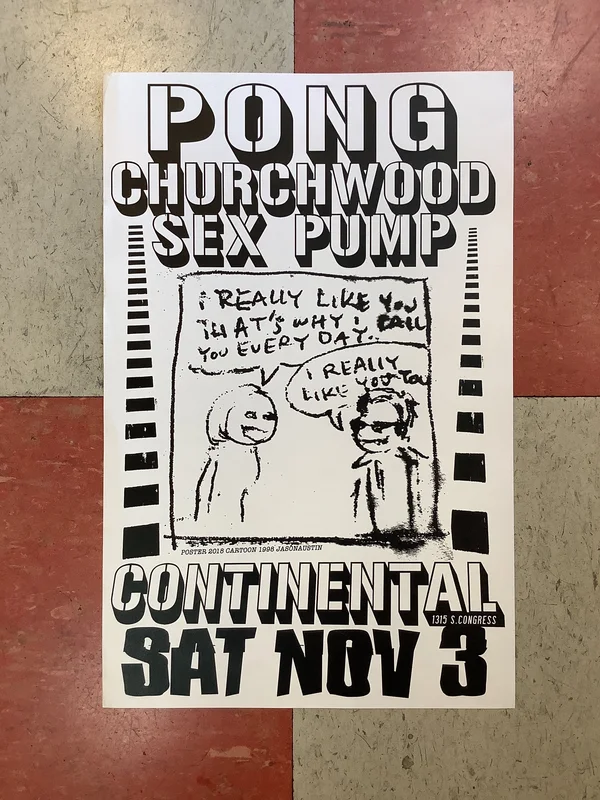 PONG
CHURCHWOOD
SEX PUMP
I REALLY LIKE YOU
THAT'S WHY I CALL
YOU EVERY DAY..
I REALLY
LIKE YOU TOO
POSTER 2018 CARTOON 1998 JASONAUSTIN
CONTINENTAL
1315 S.CONGRESS
SAT NOV 3